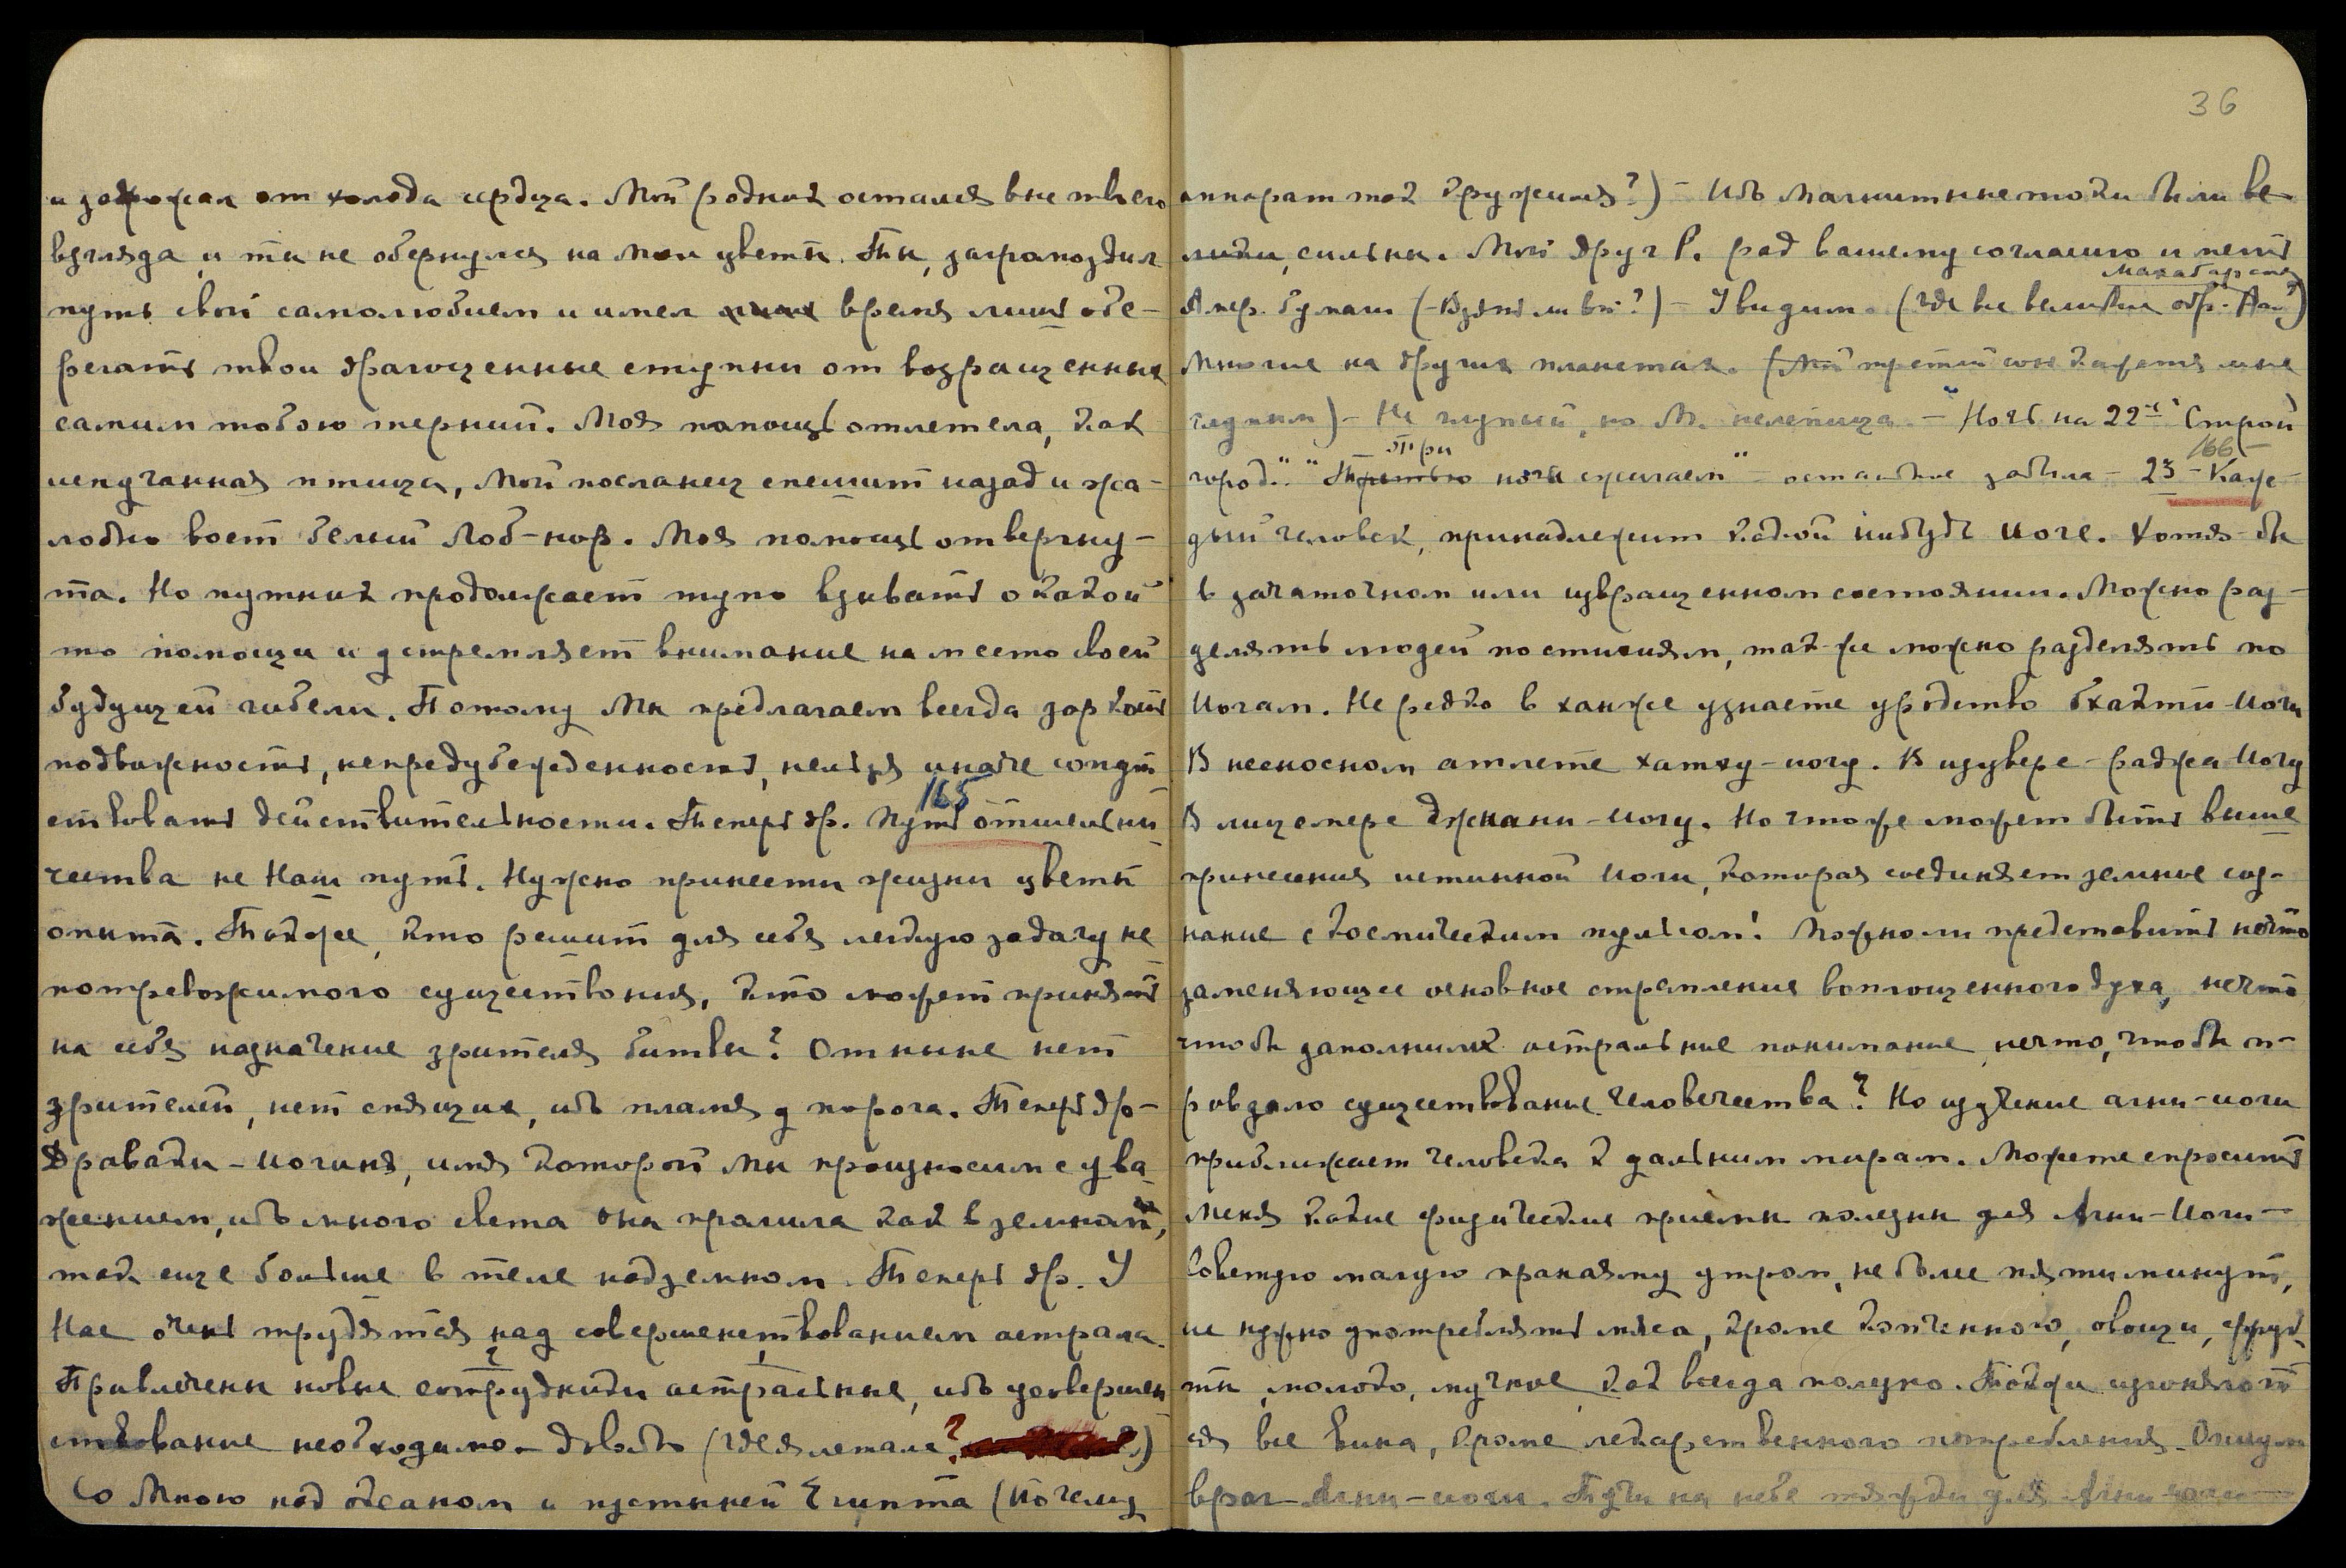 и задрожал от холода сердца. Мой родник остался вне твоего
взгляда и ты не обернулся на Мои цветы. Ты, загромоздил
путь свой самолюбием и имел время лишь обе-
регать твои драгоценные ступни от возращенных
самим тобою терний. Моя помощь отлетела, как
испуганная птица, Мой посланец спешит назад и жа-
лобно воет белый Лоб-нор. Моя помощь отвергну-
та. Но путник продолжает тупо взывать о какой
то помощи и устремляет внимание на место своей
будущей гибели. Потому Мы предлагаем всегда зоркость
подвижность, непредубежденность, нельзя иначе сопут
ствовать действительности. Теперь др. Путь отшельни
165
чества не Наш путь. Нужно принести жизни цветы
опыта. Также, кто решит для себя легкую задачу не
потревожимого существования, кто может принять
на себя назначение зрителя битвы? Отныне нет
зрителей, нет спящих, ибо пламя у порога. Теперь др-
Дравати-Иогиня, имя которой Мы произносим с ува
жением, ибо много света она пролила как в земном,
так еще больше в теле надземном. Теперь др. У
Нас очень трудятся над совершенствованием астрала.
Привлечены новые сотрудники астральные, ибо усовершен
ствование необходимо. Довольно (Где я летала?)
Со Мною над океаном и пустыней Египта (Почему
36
аппарат так кружился?) – Ибо магнитные токи были ве-
лики, сильны. Мой друг В. рад вашему согласию и
Амер. бумаги (-Взять ли вс?) – Увидим. (Где все великие обр.
Многие на других планетах. (Мой третий сон кажется мне
глупым) – Не глупый, но М. нелепица – "Ночь на 22-е" "Строй
город." "Три ночи сжигаем" – остальное забыла – 23 – Каж-
166
дый человек, принадлежит какой нибудь иоге. Хотя-бы
в зачаточном или извращенном состоянии. Можно раз-
делять людей по стихиям, так же можно разделять по
Иогам. Не редко в ханже узнаете уродство бхакти-Иоги
В несносном атлете хатху-иогу. В изувере – раджа Иогу
В лицемере джнани-иогу. Но что же может быть выше
принесения истинной Иоги, которая соединяет земное соз-
нание с космическим пульсом! Можно ли представить нечто
заменяющее основное стремление воплощенного духа, нечто
чтобы заполнило астральное понимание, нечто, чтобы оп-
равдало существование человечества? Но изучение агни-иоги
приближает человека к дальним мирам. Можете спросить
меня какие физические приемы полезны для Агни-Иоги –
Советую малую пранаяму утром, не более пяти минут,
не нужно употреблять мяса, кроме копченного, овощи, фрук
ты, молоко, мучное, как всегда полезно. Также изгоняют
ся все вина, кроме лекарственного потребления. Опиум
враг Агни-иоги. Тучи на небе тяжки для Агни-иоги –